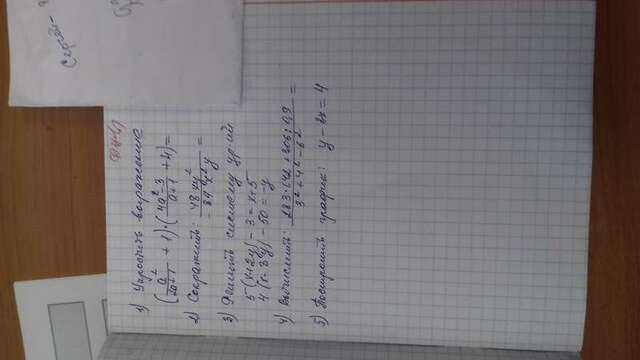 1) Упростить выражение
(a²/2a+1 + 1)·(4a²-3/a+1 + 4)=
2) Сократить: 48xy²/-84x²y =
3) Решить систему ур-ий
5(x+2y)-3=x+5
4(x-3y)-50=-y
4) Вычислить: /3²+4²-6² =
5) Построить график: y-2x=4
Сергей-